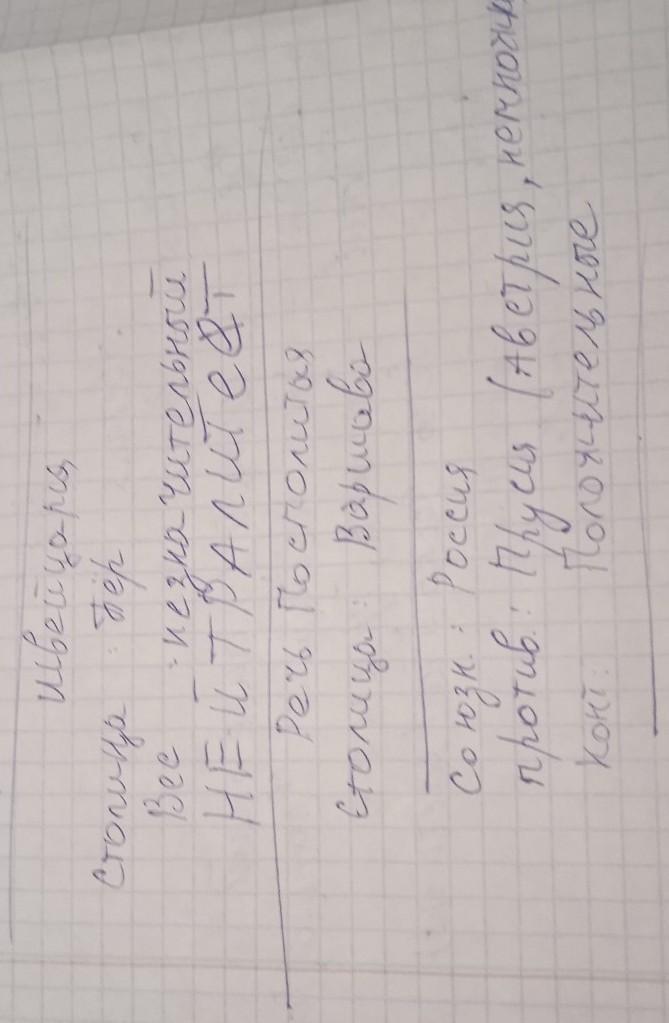 Швейцария
Столица : Бер
Вес : незначительный
НЕЙТРАЛИТЕТ
Речь Посполитая
Столица : Варшава
Союзн. : Россия
против. : Прусия (Австрия, немножк
конт: Положительные